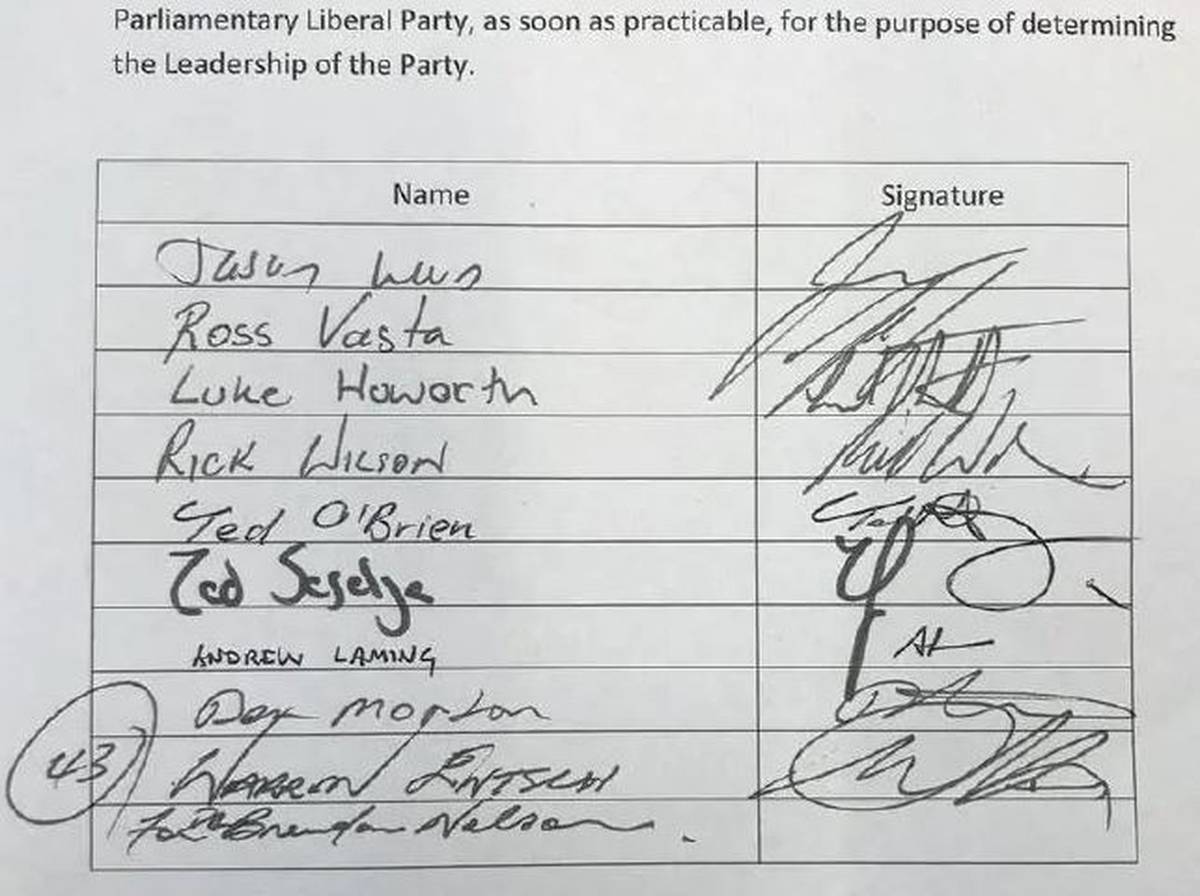 Parliamentary Liberal Party, as soon as practicable, for the purpose of determining
the Leadership of the Party.
Name Signature
Jason
Ross Vasta
Luke Howarth
Rick Wilson
Ted O'Brien
Zed Seselja
ANDREW LAMING AL
Ben Morton
43 WARREN ENTSCH
For Brendan Nelson.